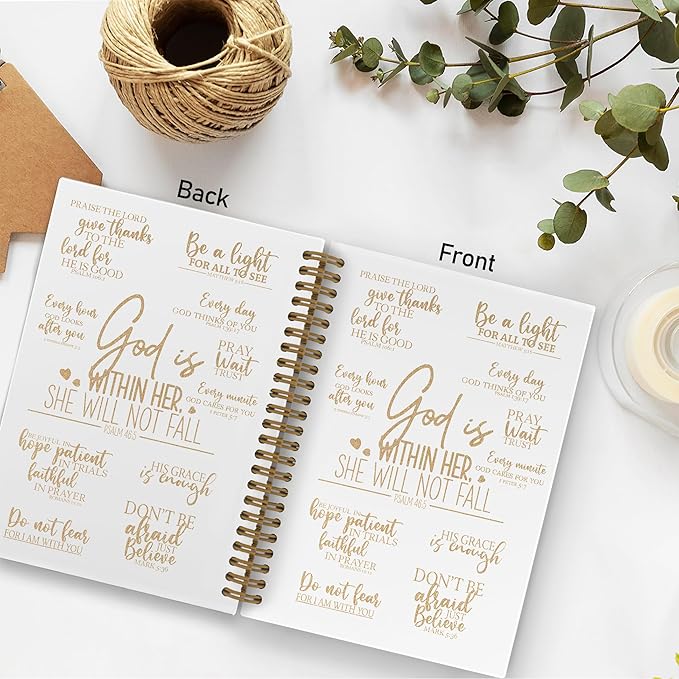 Back
PRAISE THE LORD
give thanks
TO THE
lord for
HE IS GOOD
PSALM 106:1
Be a light
FOR ALL TO SEE
Every hour
GOD LOOKS
after you
Every day
GOD THINKS OF YOU
PSALM 139:17
God is
WITHIN HER,
SHE WILL NOT FALL
PSALM 46:5
PRAY,
Wait
TRUST
Every minute
GOD CARES FOR YOU
1 PETER 5:7
BE JOYFUL IN
hope patient
IN TRIALS
faithful
IN PRAYER
ROMANS 12:12
HIS GRACE
is enough
Do not fear
FOR I AM WITH YOU
DON'T BE
afraid
JUST
Believe
MARK 5:36
Front
PRAISE THE LORD
give thanks
TO THE
lord for
HE IS GOOD
PSALM 106:1
Be a light
FOR ALL TO SEE
Every hour
GOD LOOKS
after you
Every day
GOD THINKS OF YOU
PSALM 139:17
God is
WITHIN HER,
SHE WILL NOT FALL
PSALM 46:5
PRAY,
Wait
TRUST
Every minute
GOD CARES FOR YOU
1 PETER 5:7
BE JOYFUL IN
hope patient
IN TRIALS
faithful
IN PRAYER
ROMANS 12:12
HIS GRACE
is enough
Do not fear
FOR I AM WITH YOU
DON'T BE
afraid
JUST
Believe
MARK 5:36